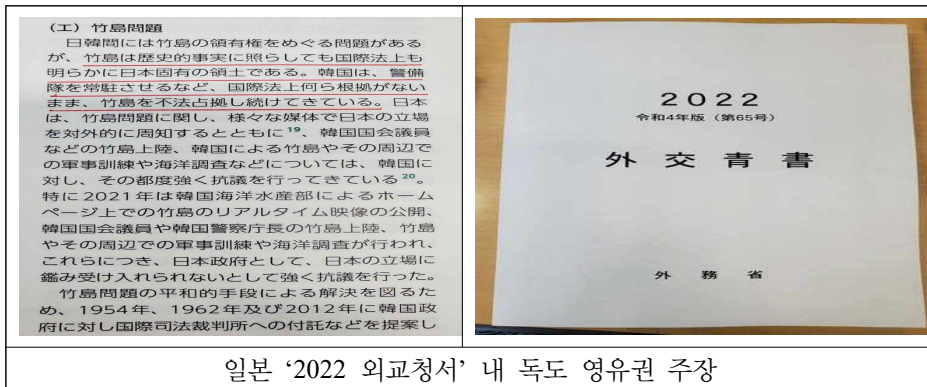 (エ) 竹島問題
日韓間には竹島の領有権をめぐる問題がある
が、竹島は歴史的事実に照らしても国際法上も
明らかに日本固有の領土である。韓国は、警備
隊を常駐させるなど、国際法上何ら根拠がない
まま、竹島を不法占拠し続けてきている。日本
は、竹島問題に関し、様々な媒体で日本の立場
を対外的に周知するとともに19、韓国国会議員
などの竹島上陸、韓国による竹島やその周辺で
の軍事訓練や海洋調査などについては、韓国に
対し、その都度強く抗議を行ってきている20。
特に2021年は韓国海洋水産部によるホーム
ページ上での竹島のリアルタイム映像の公開、
韓国国会議員や韓国警察庁長の竹島上陸、竹島
やその周辺での軍事訓練や海洋調査が行われ、
これらにつき、日本政府として、日本の立場に
鑑み受け入れられないとして強く抗議を行った。
竹島問題の平和的手段による解決を図るた
め、1954年、1962年及び2012年に韓国政
府に対し国際司法裁判所への付託などを提案し
2022
令和4年版（第65号）
外交青書
外務省
일본 ‘2022 외교청서’ 내 독도 영유권 주장